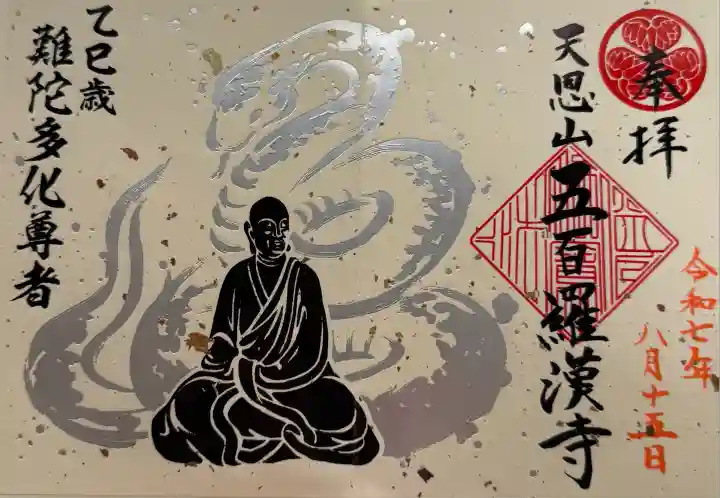 奉拝
天恩山
五百羅漢寺
令和七年
八月十五日
乙巳歳
難陀多化尊者